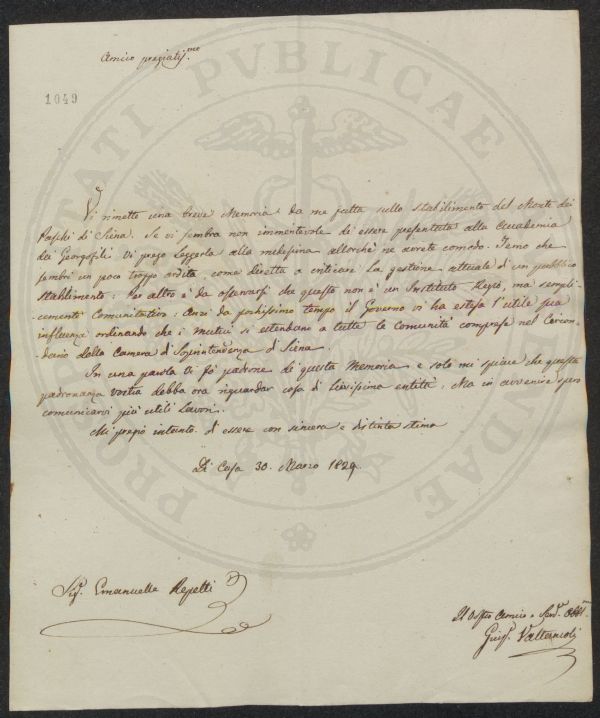 Amico pregiatis.mo
1049
Vi rimetto una breve Memoria da me fatta sullo stabilimento del Monte dei
Paschi di Siena. Se vi sembra non immeritevole di essere presentata alla Accademia
dei Georgofili vi prego Leggerla alla medesima allorchè ne avrete comodo. Temo che
sembri un poco troppo ardita, come diretta a criticare La gestione attuale di un pubblico
stabilimento: Per altro è da osservarsi che questo non è un Instituto Regio, ma sempli-
cemente Comunitativo: Anzi da pochissimo tempo il Governo vi ha estesa l'utile sua
influenza ordinando che i mutui si estendano a tutte le Comunità comprese nel Circon-
dario della Camera di Soprintendenza di Siena.
In una parola vi fo padrone di questa Memoria, e solo mi spiace che questa
padronanza vostra debba ora riguardar cosa di lievissima entità. Ma in avvenire spero
comunicarvi più utili Lavori.
Mi pregio intanto di essere con sincera e distinta stima
Di Casa 30. Marzo 1829.
Sig.r Emanuelle Repetti
Il Vostro Amico e Serv.e
PROSPERITATI PVBLICAE